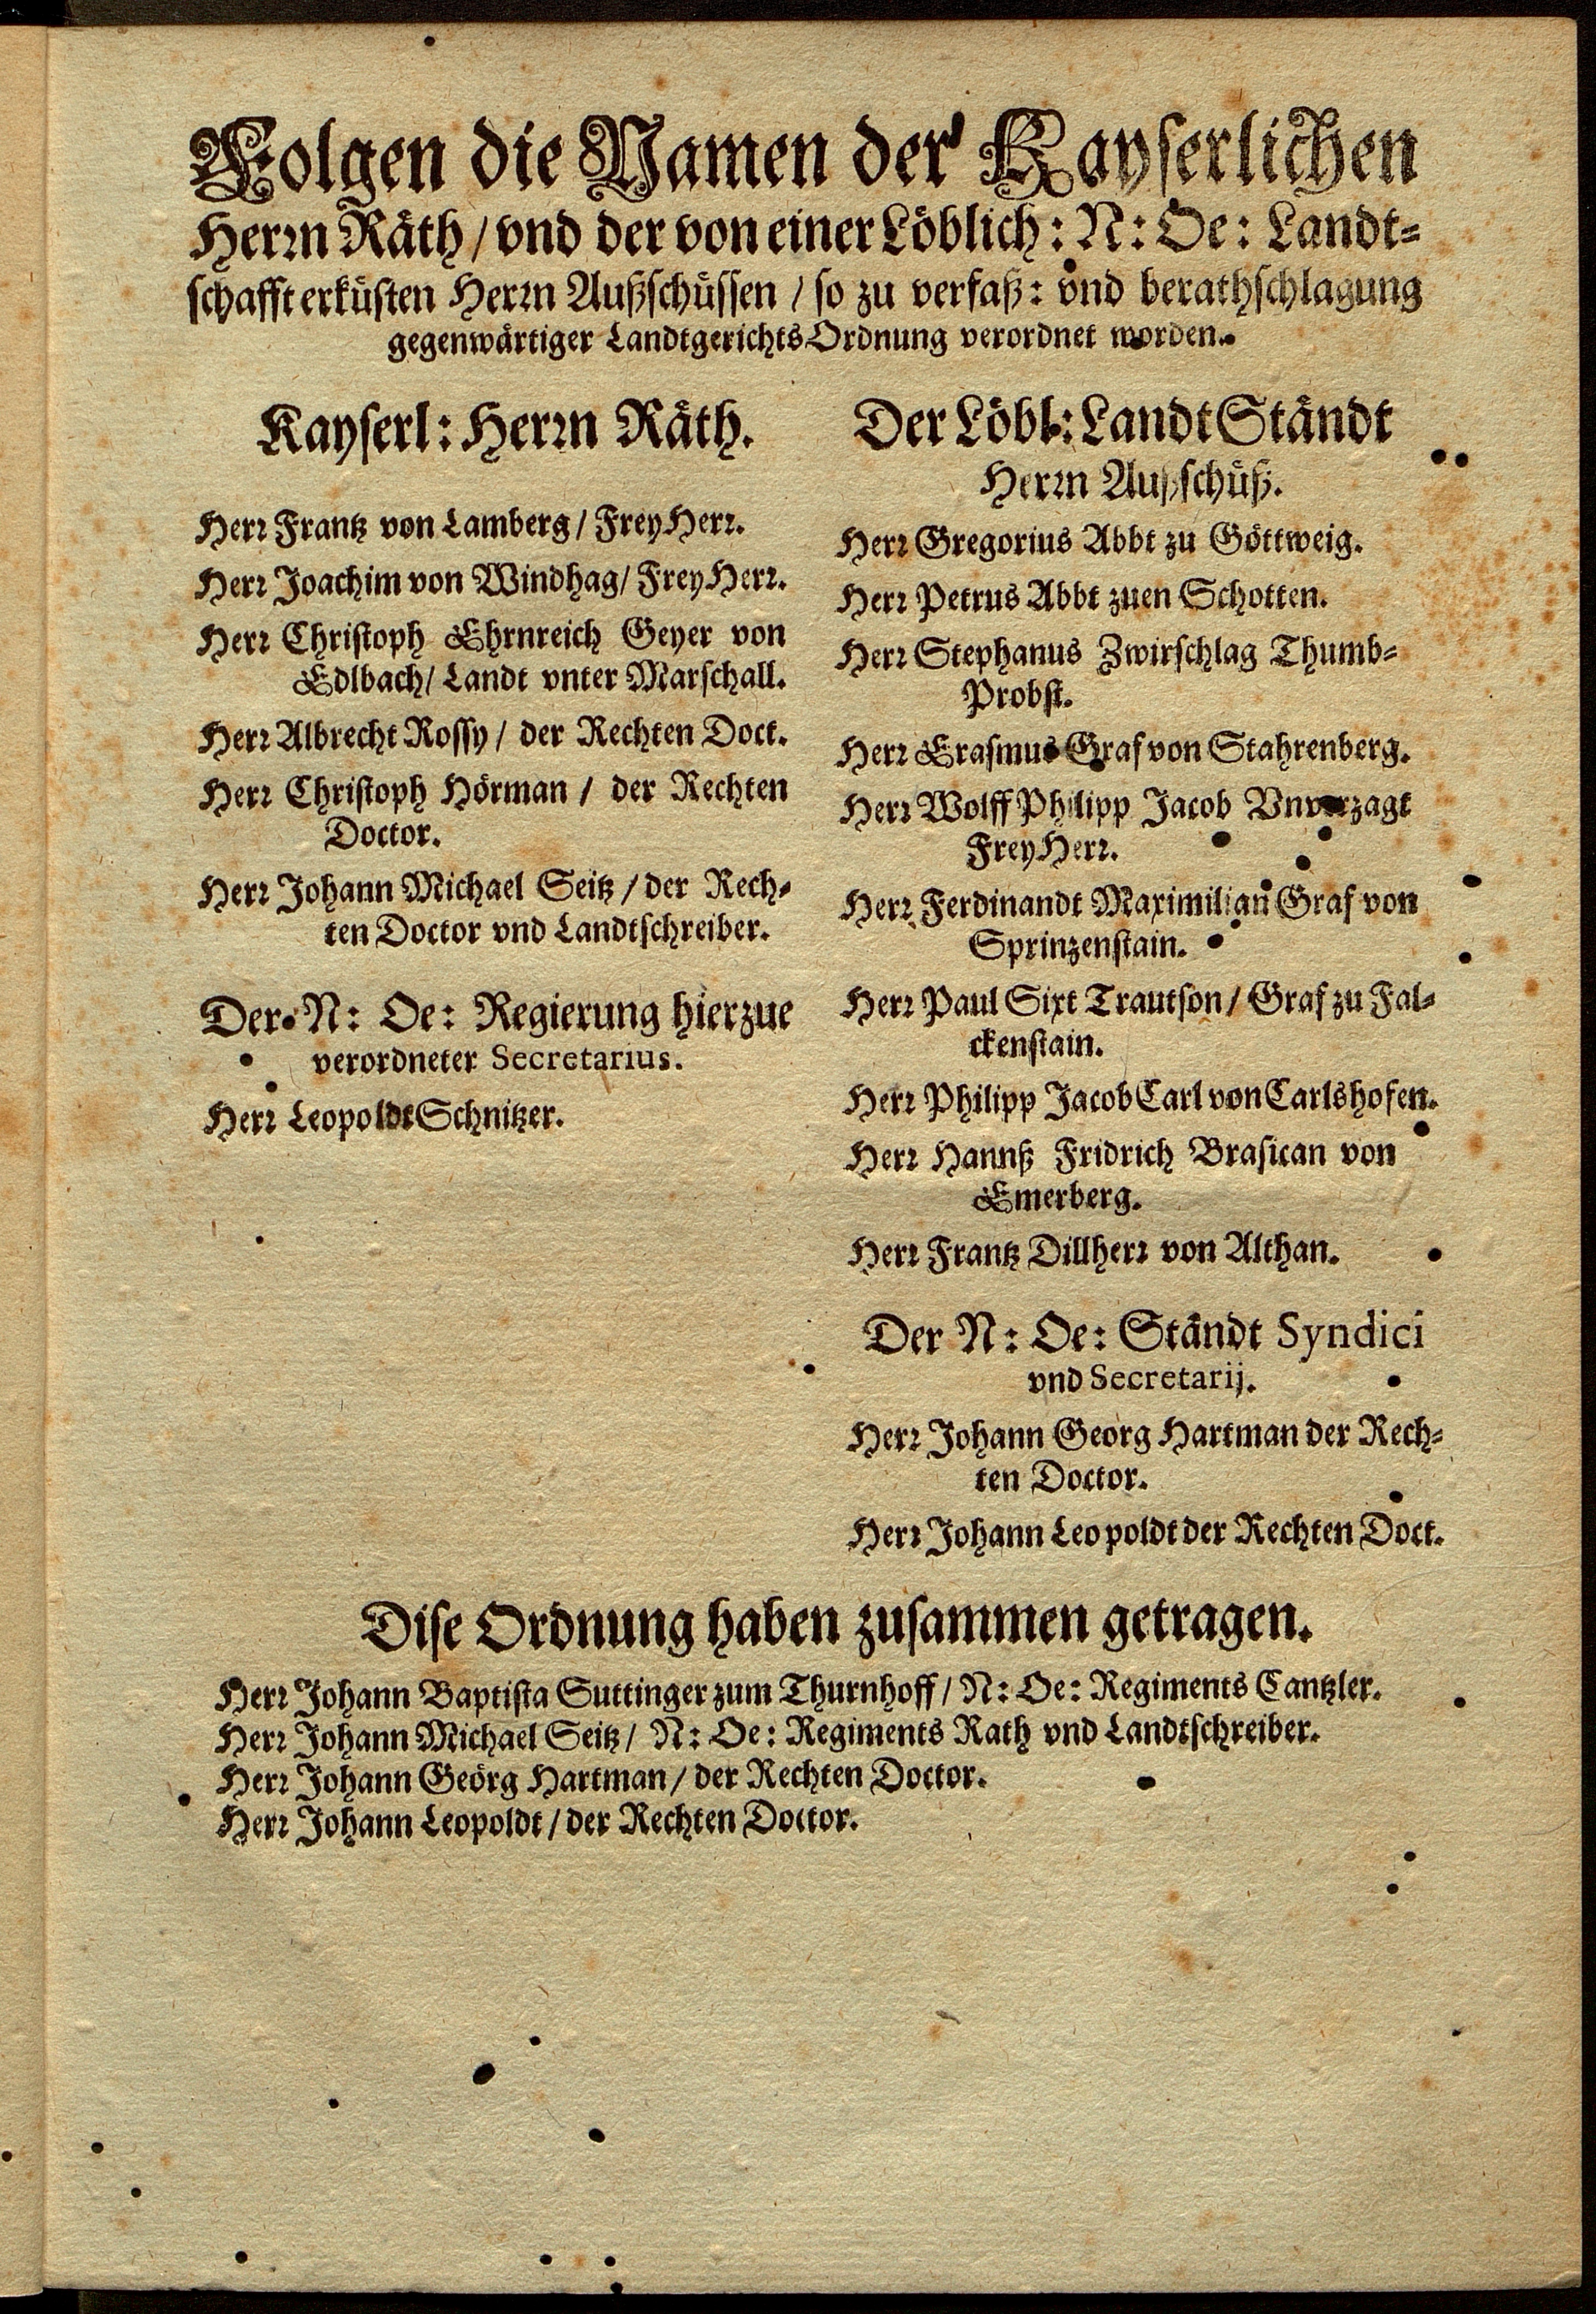 Folgen die Namen der Kayserlichen
Herrn Räth / vnd der von einer Löblich: N: Oe: Landt-
schafft erküsten Herrn Außschüssen / so zu verfaß: vnd berathschlagung
gegenwärtiger LandtgerichtsOrdnung verordnet worden.
Kayserl: Herrn Räth.
Herr Frantz von Lamberg / FreyHerr.
Herr Joachim von Windhag / FreyHerr.
Herr Christoph Ehrnreich Geyer von
Edlbach / Landt vnter Marschall.
Herr Albrecht Rossy / der Rechten Doct.
Herr Christoph Hörman / der Rechten
Doctor.
Herr Johann Michael Seitz / der Rech-
ten Doctor vnd Landtschreiber.
Der N: Oe: Regierung hierzue
verordneter Secretarius.
Herr Leopoldt Schnitzer.
Der Löbl: LandtStändt
Herrn Außschüß.
Herr Gregorius Abbt zu Göttweig.
Herr Petrus Abbt zuen Schotten.
Herr Stephanus Zwirschlag Thumb-
Probst.
Herr Erasmus Graf von Stahrenberg.
Herr Wolff Philipp Jacob Vnverzagt
FreyHerr.
Herr Ferdinandt Maximilian Graf von
Sprinzenstain.
Herr Paul Sixt Trautson / Graf zu Fal-
ckenstain.
Herr Philipp Jacob Carl von Carlshofen.
Herr Hannß Fridrich Brasican von
Emerberg.
Herr Frantz Dillherr von Althan.
Der N: Oe: Ständt Syndici
vnd Secretarij.
Herr Johann Georg Hartman der Rech-
ten Doctor.
Herr Johann Leopoldt der Rechten Doct.
Dise Ordnung haben zusammen getragen.
Herr Johann Baptista Suttinger zum Thurnhoff / N: Oe: Regiments Cantzler.
Herr Johann Michael Seitz / N: Oe: Regiments Rath vnd Landtschreiber.
Herr Johann Geörg Hartman / der Rechten Doctor.
Herr Johann Leopoldt / der Rechten Doctor.